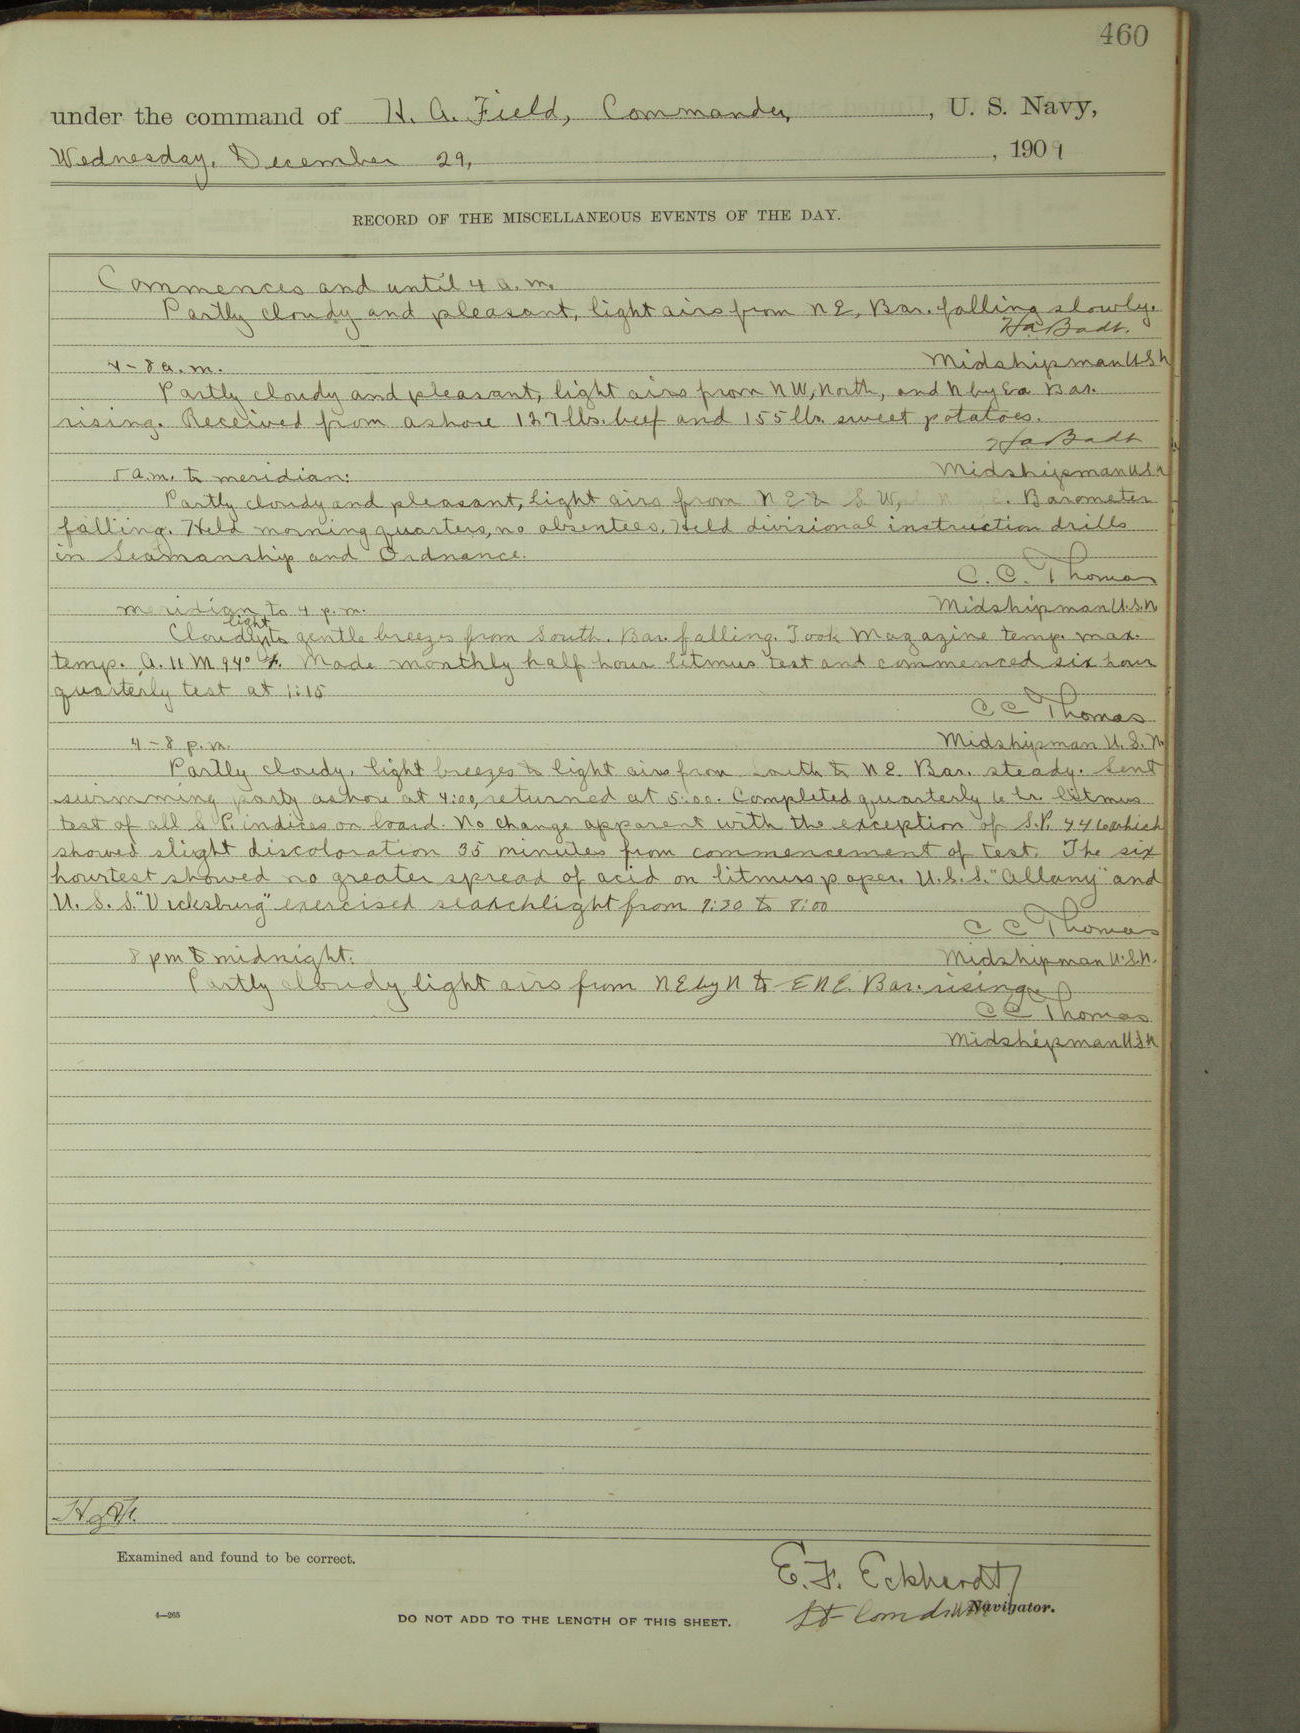 460
under the command of H. A. Field, Commander, , U. S. Navy,
Wednesday, December 29, , 1909
RECORD OF THE MISCELLANEOUS EVENTS OF THE DAY.
Commences and until 4 a.m.
Partly cloudy and pleasant, light airs from NE, Bar. falling slowly.
Ha Badt.
Midshipman U S N
4-8 a.m.
Partly cloudy and pleasant, light airs from NW, North, and N by E. Bar.
rising. Received from ashore 127 lbs. beef and 155 lbs. sweet potatoes.
Ha Badt
Midshipman U.S.N
8 a.m. to meridian:
Partly cloudy and pleasant, light airs from NE & SW, Barometer
falling. Held morning quarters, no absentees. Held divisional instruction drills
in Seamanship and Ordnance.
C. C. Thomas
Midshipman U.S.N
meridian to 4 p.m.
Cloudy light to gentle breezes from South. Bar. falling. Took Magazine temp. max.
temp. A. 11 M 94° F. Made monthly half hour litmus test and commenced six hour
quarterly test at 1:15
C C Thomas
Midshipman U. S. N.
4-8 p.m.
Partly cloudy, light breezes to light airs from South to NE. Bar. steady. Sent
swimming party ashore at 4:00, returned at 5:00. Completed quarterly 6 hr. litmus
test of all S. P. indices on board. No change apparent with the exception of S.P. which
showed slight discoloration 35 minutes from commencement of test. The six
hour test showed no greater spread of acid on litmus paper. U.S.S. "Albany" and
U. S. S. "Vicksburg" exercised searchlight from 7:30 to 8:00
C C Thomas
Midshipman U.S.N.
8 pm to midnight:
Partly cloudy light airs from NE by N to ENE. Bar. rising.
C C Thomas
Midshipman U S N
Examined and found to be correct.
E. F. Eckhardt
Lt Comdr USN Navigator.
4—265
DO NOT ADD TO THE LENGTH OF THIS SHEET.